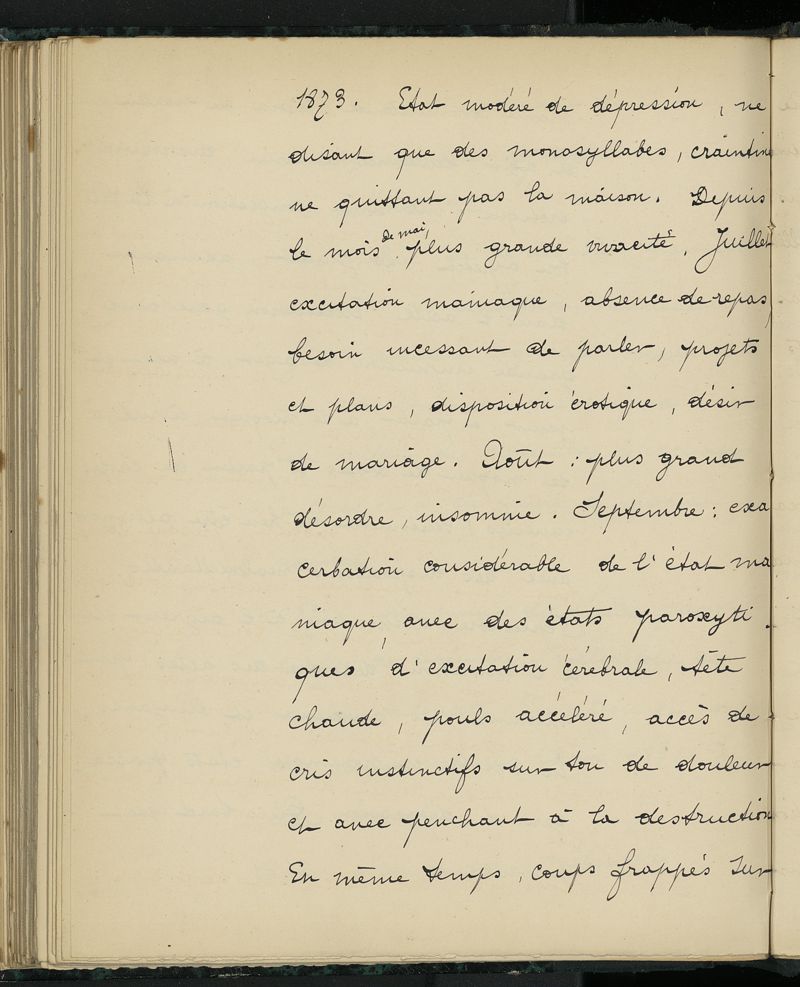 1873. Etat modéré de dépression, ne
disant que des monosyllabes, craintive
ne quittant pas la maison. Depuis
le mois de mai, plus grande vivacité. Juillet
excitation maniaque, absence de repos,
besoin incessant de parler, projets
et plans, disposition érotique, désir
de mariage. Août : plus grand
désordre, insomnie. Septembre : exa
cerbation considérable de l'état ma
niaque, avec des états paroxyti
ques d'excitation cérébrale, tête
chaude, pouls accéléré, accès de
cris instinctifs sur ton de douleur
et avec penchant à la destruction
En même temps, coups frappés sur